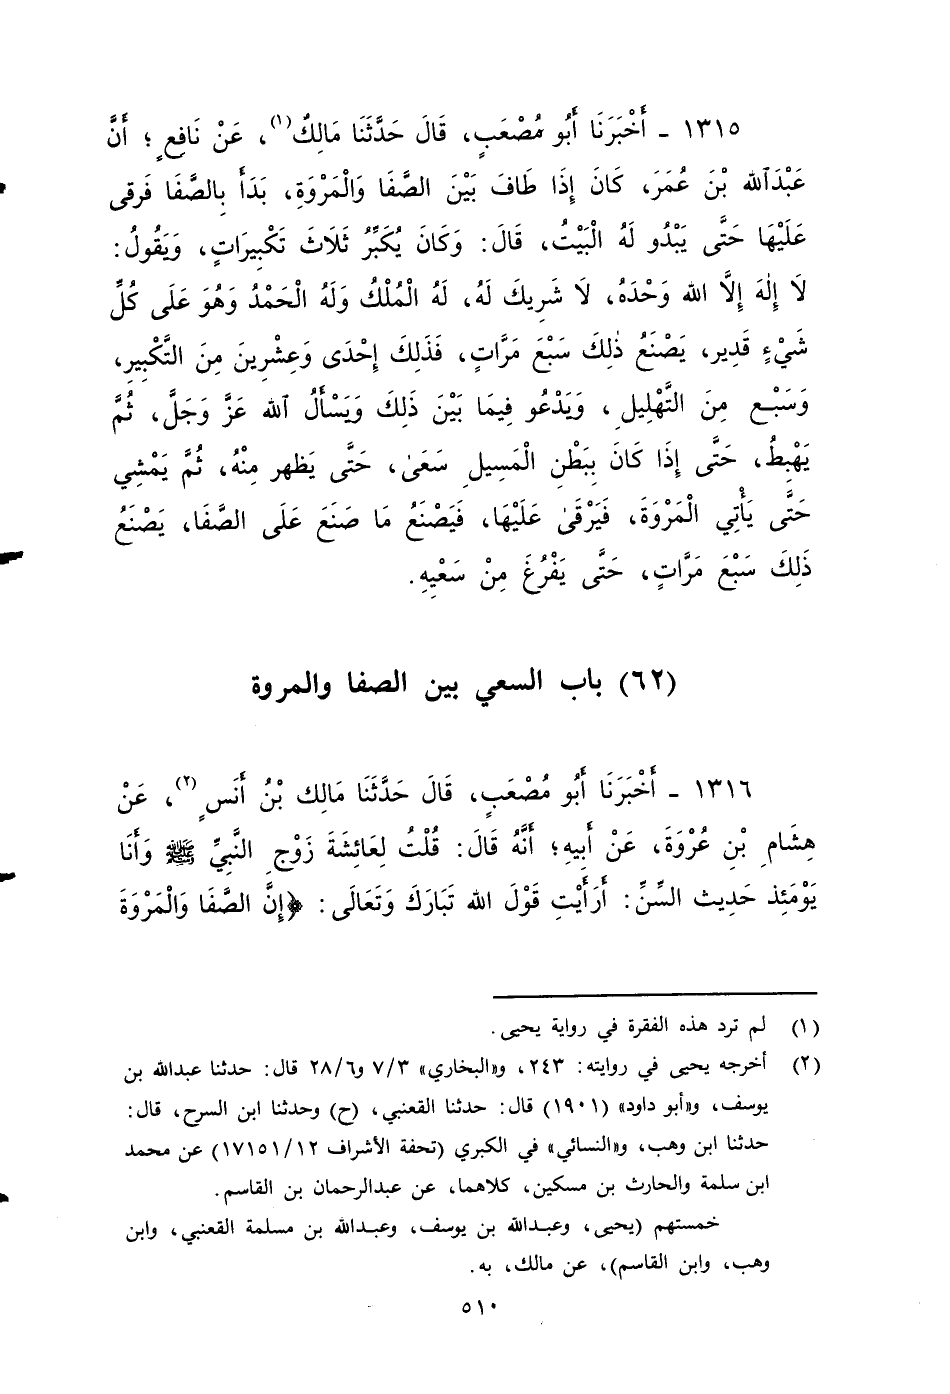 ١٣١٥ ـ أَخْبَرَنَا أَبُو مُصْعَبٍ، قَالَ حَدَّثَنَا مَالِكٌ(١)، عَنْ نَافِعٍ؛ أَنَّ
عَبْدَٱلله بْنَ عُمَرَ، كَانَ إِذَا طَافَ بَيْنَ الصَّفَا وَالْمَرْوَةِ، بَدَأَ بِالصَّفَا فَرقى
عَلَيْهَا حَتَّى يَبْدُو لَهُ الْبَيْتُ، قَالَ: وَكَانَ يُكَبِّرُ ثَلَاثَ تَكْبِيرَاتٍ، وَيَقُولُ:
لَا إِلٰهَ إِلَّا الله وَحْدَهُ، لَا شَرِيكَ لَهُ، لَهُ الْمُلْكُ وَلَهُ الْحَمْدُ وَهُوَ عَلَى كُلِّ
شَيْءٍ قَدِير، يَصْنَعُ ذٰلِكَ سَبْعَ مَرَّاتٍ، فَذَلِكَ إِحْدَى وَعِشْرِينَ مِنَ التَّكْبِيرِ،
وَسَبْعٍ مِنَ التَّهْلِيلِ، وَيَدْعُو فِيمَا بَيْنَ ذَلِكَ وَيَسْأَلُ ٱلله عَزَّ وَجَلَّ، ثُمَّ
يَهْبِطُ، حَتَّى إِذَا كَانَ بِبَطْنِ الْمَسِيلِ سَعَىٰ، حَتَّى يَظهر مِنْهُ، ثُمَّ يَمْشِي
حَتَّى يَأْتِي الْمَرْوَةَ، فَيَرْقَىٰ عَلَيْهَا، فَيَصْنَعُ مَا صَنَعَ عَلَى الصَّفَا، يَصْنَعُ
ذَلِكَ سَبْعَ مَرَّاتٍ، حَتَّى يَفْرُغَ مِنْ سَعْيِهِ.
(٦٢) باب السعي بين الصفا والمروة
١٣١٦ ـ أَخْبَرَنَا أَبُو مُصْعَبٍ، قَالَ حَدَّثَنَا مَالِك بْنُ أَنَسٍ(٢)، عَنْ
هِشَامِ بْنِ عُرْوَةَ، عَنْ أَبِيهِ؛ أَنَّهُ قَالَ: قُلْتُ لِعَائِشَةَ زَوْجِ النَّبِيِّ ﷺ وَأَنَا
يَوْمَئِذ حَدِيث السِّنِّ: أَرَأَيْتِ قَوْلَ الله تَبَارَكَ وَتَعَالَى: ﴿إِنَّ الصَّفَا وَالْمَرْوَةَ
(١) لم ترد هذه الفقرة في رواية يحيى.
(٢) أخرجه يحيى في روايته: ٢٤٣، و«البخاري» ٧/٣ و٢٨/٦ قال: حدثنا عبدالله بن
يوسف، و«أبو داود» (١٩٠١) قال: حدثنا القعنبي، (ح) وحدثنا ابن السرح، قال:
حدثنا ابن وهب، و«النسائي» في الكبري (تحفة الأشراف ١٧١٥١/١٢) عن محمد
ابن سلمة والحارث بن مسكين، كلاهما، عن عبدالرحمان بن القاسم.
خمستهم (يحيى، وعبدالله بن يوسف، وعبدالله بن مسلمة القعنبي، وابن
وهب، وابن القاسم)، عن مالك، به.
٥١٠